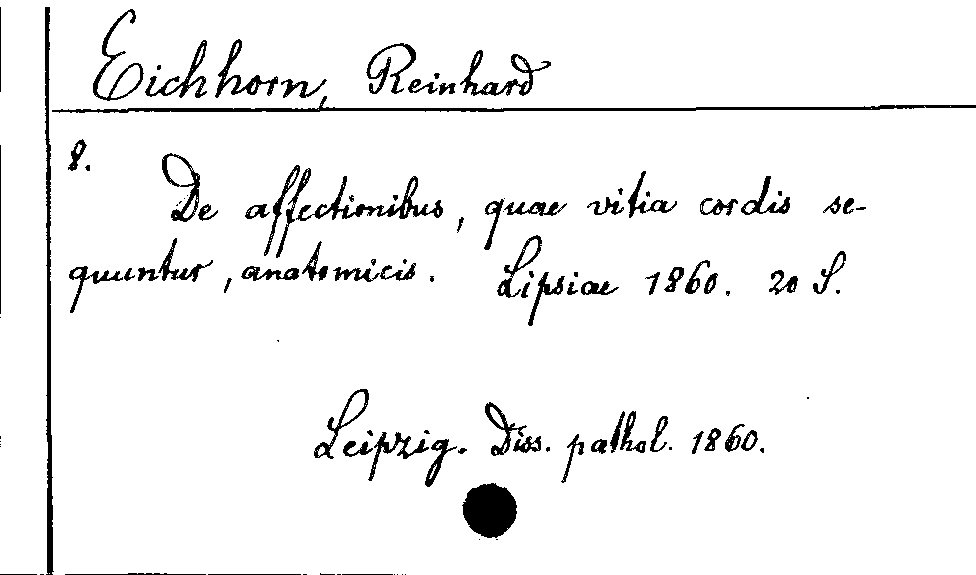 Eichhorn, Reinhard
8.
De affectionibus, quae vitia cordis se-
quuntur, anatomicis. Lipsiae 1860. 20 S.
Leipzig. Diss. pathol. 1860.